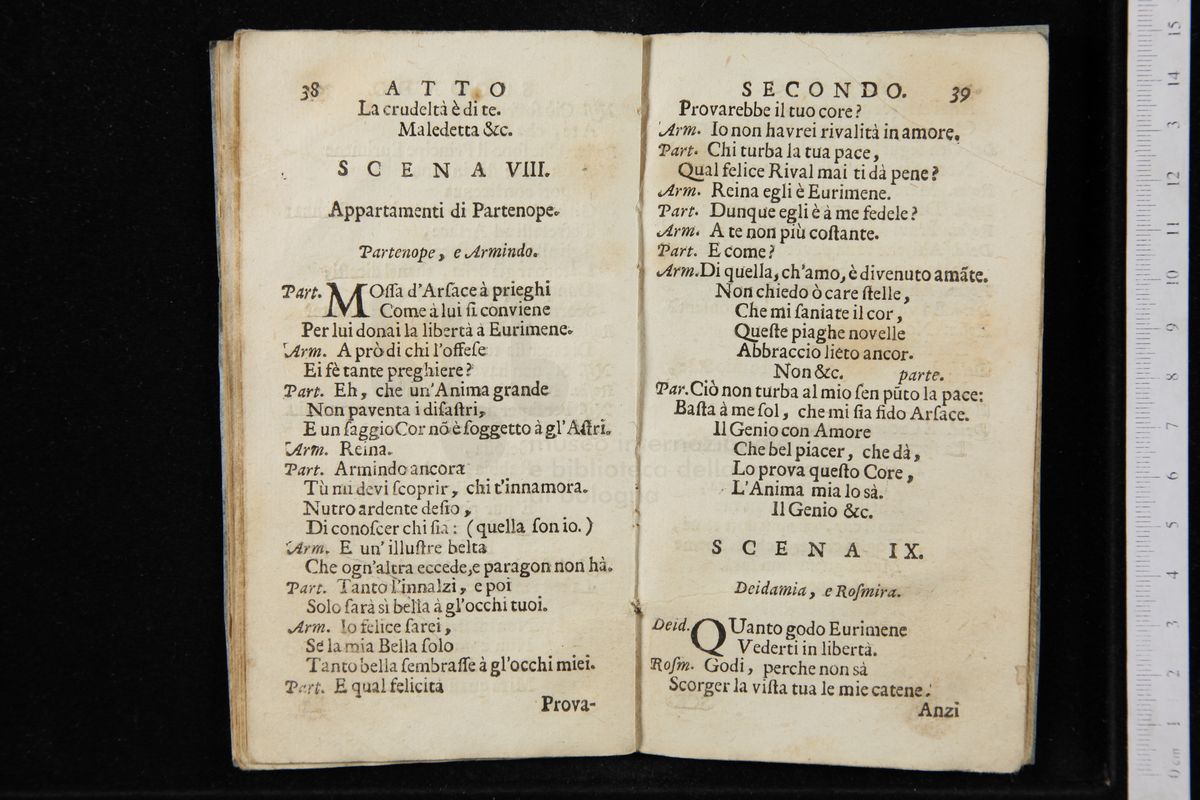 38 ATTO
La crudeltà è di te.
Maledetta &c.
SCENA VIII.
Appartamenti di Partenope.
Partenope, e Armindo.
Part. MOſſa d'Arſace à prieghi
Come à lui ſi conviene
Per lui donai la libertà à Eurimene.
Arm. A prò di chi l'offeſe
Ei fè tante preghiere?
Part. Eh, che un'Anima grande
Non paventa i diſaſtri,
E un ſaggio Cor nõ è ſoggetto à gl'Aſtri.
Arm. Reina.
Part. Armindo ancora
Tù mi devi ſcoprir, chi t'innamora.
Nutro ardente deſio,
Di conoſcer chi ſia: (quella ſon io.)
Arm. E un' illuſtre belta
Che ogn'altra eccede, e paragon non hà.
Part. Tanto l'innalzi, e poi
Solo ſarà sì bella à gl'occhi tuoi.
Arm. Io felice ſarei,
Se la mia Bella ſolo
Tanto bella ſembraſſe à gl'occhi miei.
Part. E qual felicità
Prova-
SECONDO. 39
Provarebbe il tuo core?
Arm. Io non havrei rivalità in amore.
Part. Chi turba la tua pace,
Qual felice Rival mai ti dà pene?
Arm. Reina egli è Eurimene.
Part. Dunque egli è à me fedele?
Arm. A te non più coſtante.
Part. E come?
Arm. Di quella, ch'amo, è divenuto amãte.
Non chiedo ò care ſtelle,
Che mi ſaniate il cor,
Queſte piaghe novelle
Abbraccio lieto ancor.
Non &c. parte.
Par. Ciò non turba al mio ſen pũto la pace:
Baſta à me ſol, che mi ſia fido Arſace.
Il Genio con Amore
Che bel piacer, che dà,
Lo prova queſto Core,
L'Anima mia lo sà.
Il Genio &c.
SCENA IX.
Deidamia, e Roſmira.
Deid. QUanto godo Eurimene
Vederti in libertà.
Roſm. Godi, perche non sà
Scorger la viſta tua le mie catene.
Anzi
museo internazi
e biblioteca della
di bologna